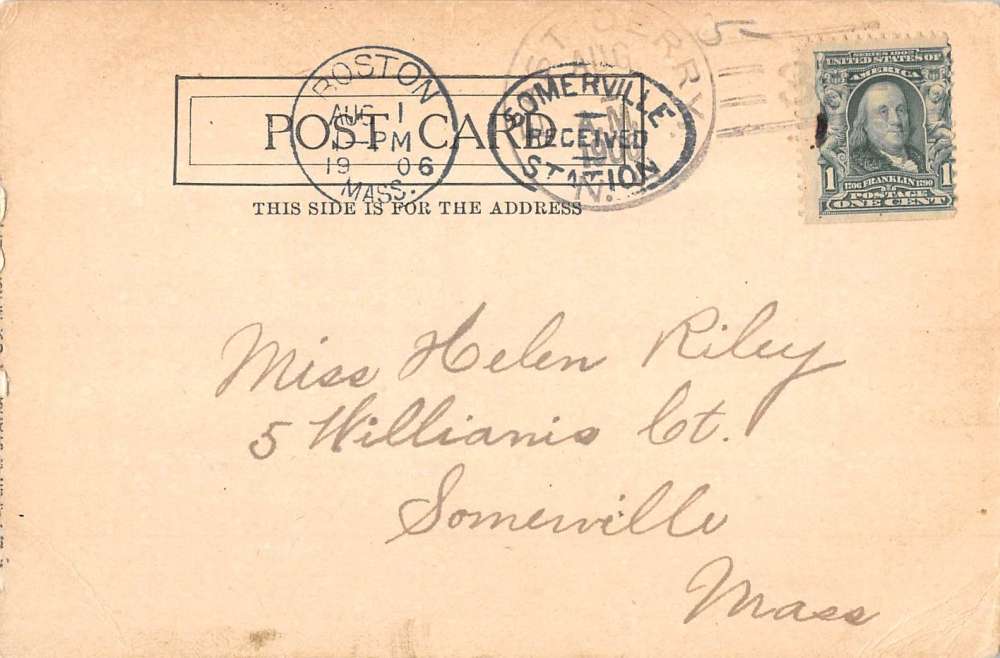 POST CARD
THIS SIDE IS FOR THE ADDRESS
BOSTON
AUG 1
PM
19 06
MASS.
SOMERVILLE
RECEIVED
STATION
AUG
A.M.
N.
5
SERIES 1902
UNITED STATES OF
AMERICA
1 1
1706 FRANKLIN 1790
POSTAGE
ONE CENT
Miss Helen Riley
5 Williams Ct.
Somerville
Mass